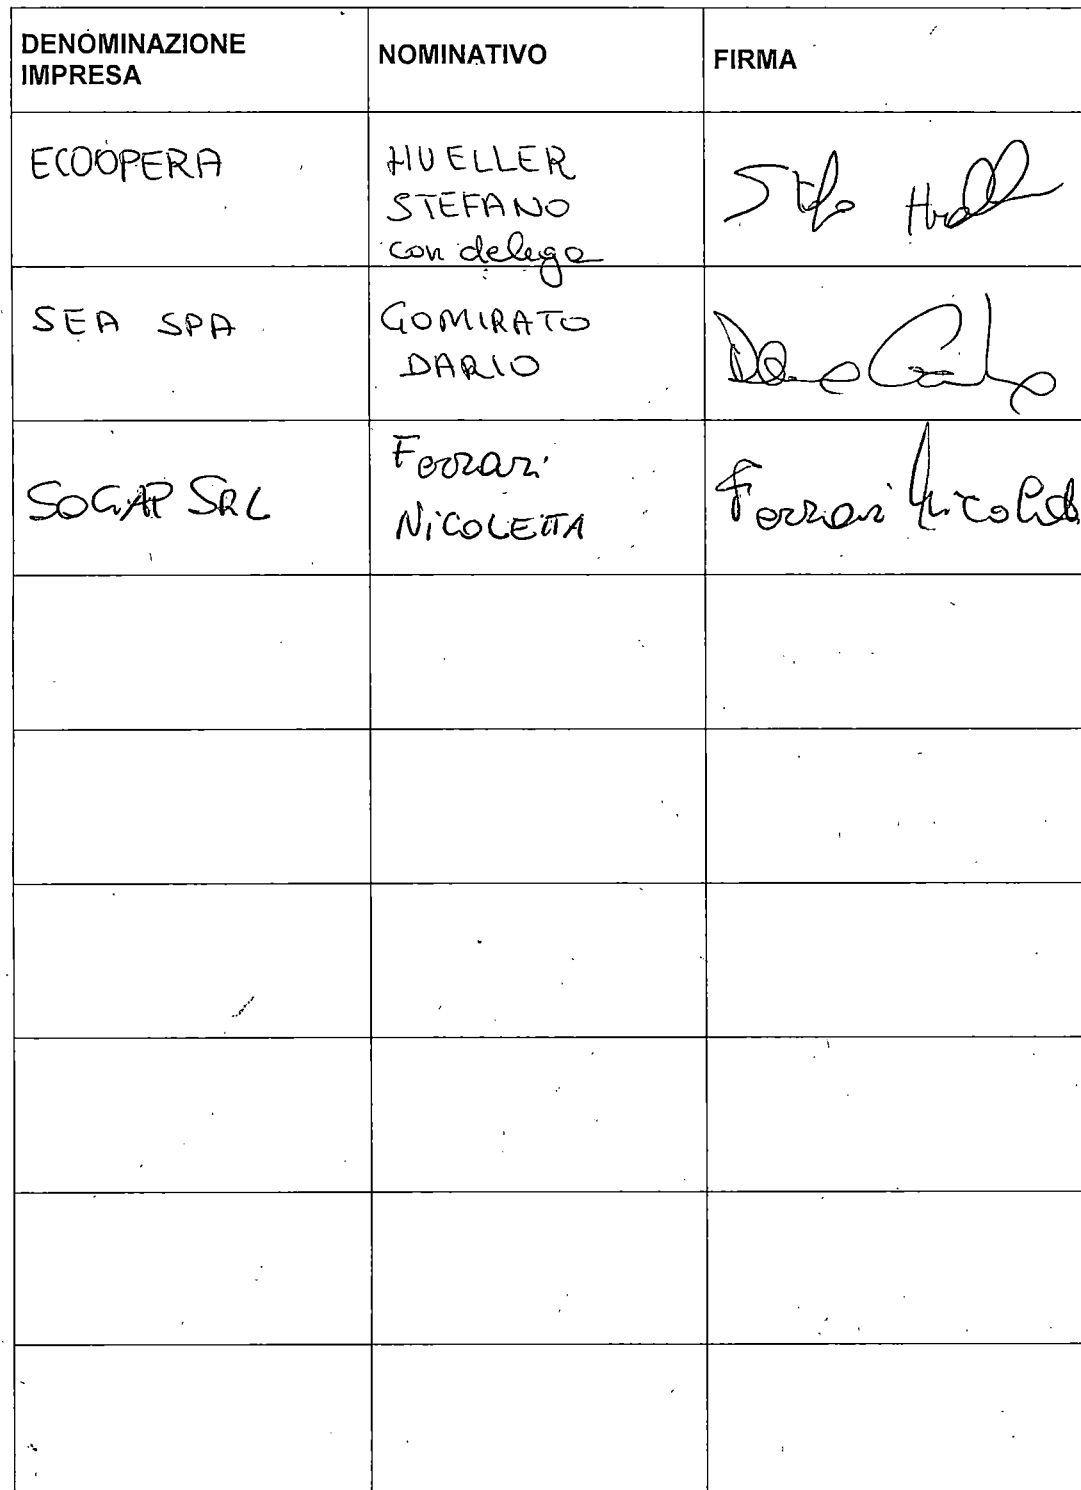 DENOMINAZIONE
IMPRESA
NOMINATIVO
FIRMA
ECOOPERA
HUELLER
STEFANO
con delega
SEA SPA
GOMIRATO
DARIO
SOGAP SRL
Ferrari
NICOLETTA
Ferrari Nicoletta